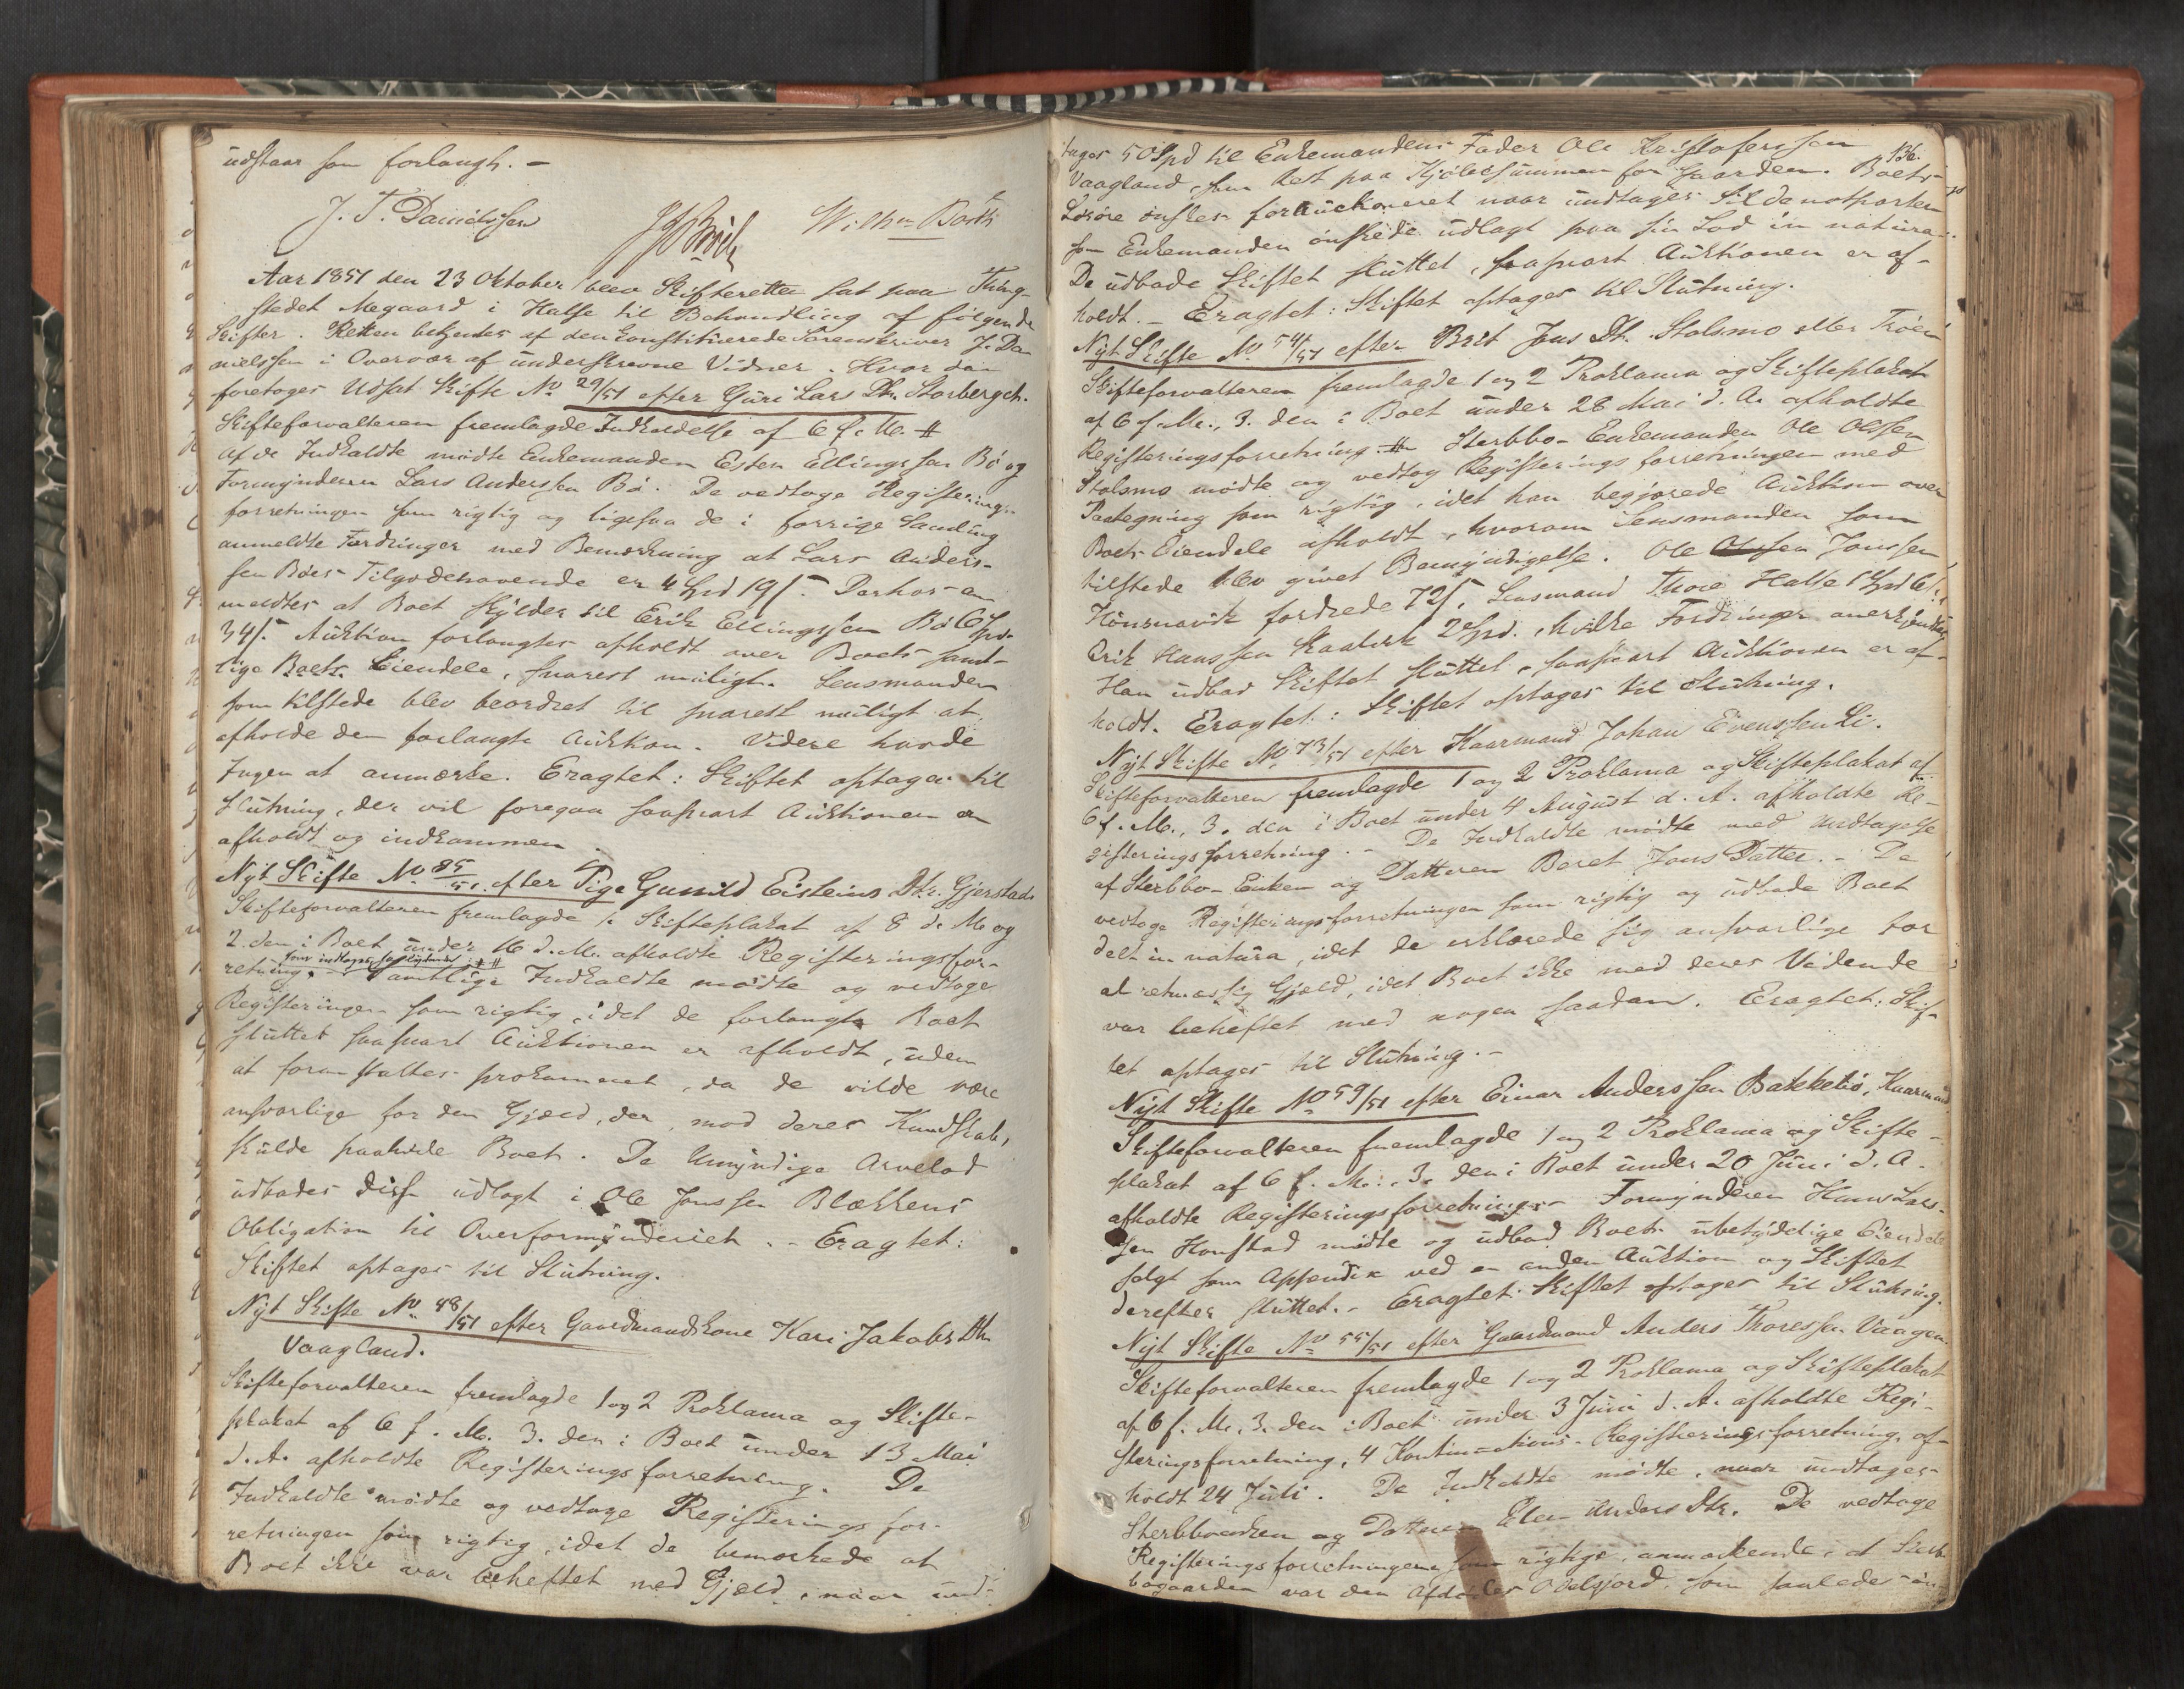 udstaar som forlangt. -
J. T. Danielssen
Wilh. Barth
Aar 1851 den 23 Oktober blev Skifteretten sat paa Thing-
stedet Megaard i Halse til Behandling af følgende
Skifter. Retten betjentes af den konstituerede Sorenskriver J. Da-
nielssen i Overvær af underskrevne Vidner. Hvor da
foretoges Udsat Skifte No 29/51 efter Guri Lars Dtr. Storberget.
Skifteforvalteren fremlagde Indkaldelse af 6 f. M. #
Af de Indkaldte mødte Enkemanden Esten Ellingssen Bø og
Formynderen Lars Anderssen Bø. De vedtoge Registerings-
forretningen som rigtig og ligesaa de i forrige Samling
anmeldte Fordringer med Bemærkning at Lars Anders-
sen Bøes Tilgodehavende er 4 Spd 19 s. Derhos an-
meldtes at Boet skylder til Erik Ellingssen Bø 6 Spd.
34 s. Auktion forlangtes afholdt over Boets samt-
lige Boets Eiendele, snarest muligt. Lensmanden
som tilstede blev beordret til snarest muligt at
afholde den forlangte Auktion. Videre havde
Ingen at anmærke. Eragtet: Skiftet optages til
Slutning, der vil foregaa saasnart Auktionen er
afholdt og indkommen
Nyt Skifte No 85/51 efter Pige Gunild Eisteins Dtr. Gjerstad
Skifteforvalteren fremlagde 1. Skifteplakat af 8 d. M. og
2. den i Boet under 16 d. M. afholdte Registeringsfor-
som indtages saalydende: # #
retning. - Samtlige Indkaldte mødte og vedtoge
Registeringen som rigtig, idet de forlangte Boet
sluttet saasnart Auktionen er afholdt, uden
at foranstaltes proklameret, da de vilde være
ansvarlige for den Gjæld, der, mod deres Kundskab,
skulde paahvile Boet. De Umyndiges Arvelod
udbades disse udlagt i Ole Jonssen Blækkens
Obligation til Overformynderiet. - Eragtet:
Skiftet optages til Slutning.
Nyt Skifte No 48/51 efter Gaardmandskone Kari Jakobs Dtr
Vaagland.
Skifteforvalteren fremlagde 1 og 2 Proklama og Skifte-
plakat af 6 f. M. 3. den i Boet under 13 Mai
d. A. afholdte Registeringsforretning. De
Indkaldte mødte og vedtoge Registeringsfor-
retningen som rigtig, idet de bemærkede at
Boet ikke var beheftet med Gjæld, naar und-
136.
tages 50 Spd til Enkemandens Fader Ole Kristofersen
Vaagland, som Rest paa Kjøbesummen for Gaarden. Boets
Løsøre ønskes forauktioneret naar undtages Sildenotparten
som Enkemanden ønskede udlagt paa sin Lod in natura.
De udbade Skiftet sluttet, saasnart Auktionen er af-
holdt. - Eragtet: Skiftet optages til Slutning.
Nyt Skifte No 54/51 efter Brit Jons Dtr. Stolsmo eller Trøen
Skifteforvalteren fremlagde 1 og 2 Proklama og Skifteplakat
af 6 f. M., 3. den i Boet under 28 Mai d. A. afholdte
Registeringsforretning. # Sterbbo-Enkemanden Ole Olssen
Stolsmo mødte og vedtog Registeringsforretningen med
Paategning som rigtig, idet han begjærede Auktion over
Boets Eiendele afholdt, hvorom Lensmanden som
tilstede blev givet Bemyndigelse. Ole Jonssen
Hønsnavik fordrede 72 s., Lensmand Thore Halse 1 Spd 6 s.
Erik Hanssen Kaalvik 2 Spd., hvilke Fordringer anerkjendtes
Han udbad Skiftet sluttet, saasnart Auktionen er af-
holdt. Eragtet: Skiftet optages til Slutning.
Nyt Skifte No 73/51 efter Kaarmand Johan Evenssen Li.
Skifteforvalteren fremlagde 1 og 2 Proklama og Skifteplakat af
6 f. M., 3. den i Boet under 4 August d. A. afholdte Re-
gisteringsforretning. - De Indkaldte mødte med Undtagelse
af Sterbbo-Enken og Datteren Beret Jons Datter. - De
vedtoge Registeringsforretningen som rigtig og udbade Boet
delt in natura, idet de erklærede sig ansvarlige for
al retmæssig Gjæld, idet Boet ikke med deres Vidende
var beheftet med nogen saadan. Eragtet: Skif-
tet optages til Slutning. -
Nyt Skifte No 59/51 efter Einar Anderssen Bakkebø, Kaarmand
Skifteforvalteren fremlagde 1 og 2 Proklama og Skifte-
plakat af 6 f. M., 3. den i Boet under 20 Juni d. A.
afholdte Registeringsforretning. - Formynderen Hans Lars-
sen Honstad mødte og udbad Boets ubetydelige Eiendele
solgt som Appendix ved en anden Auktion og Skiftet
derefter sluttet. - Eragtet: Skiftet optages til Slutning.
Nyt Skifte No 55/51 efter Gaardmand Anders Thoressen Vaagen
Skifteforvalteren fremlagde 1 og 2 Proklama og Skifteplakat
af 6 f. M., 3. den i Boet under 3 Juni d. A. afholdte Regi-
steringsforretning, 4 Kontinuations-Registeringsforretning, af-
holdt 24 Juli. De Indkaldte mødte, naar undtages
Sterbboenken og Datteren Elen Anders Dtr. De vedtoge
Registeringsforretningerne som rigtige, anmærkende, at Sterb-
bogaarden var den Afdødes Odelsjord, som saaledes